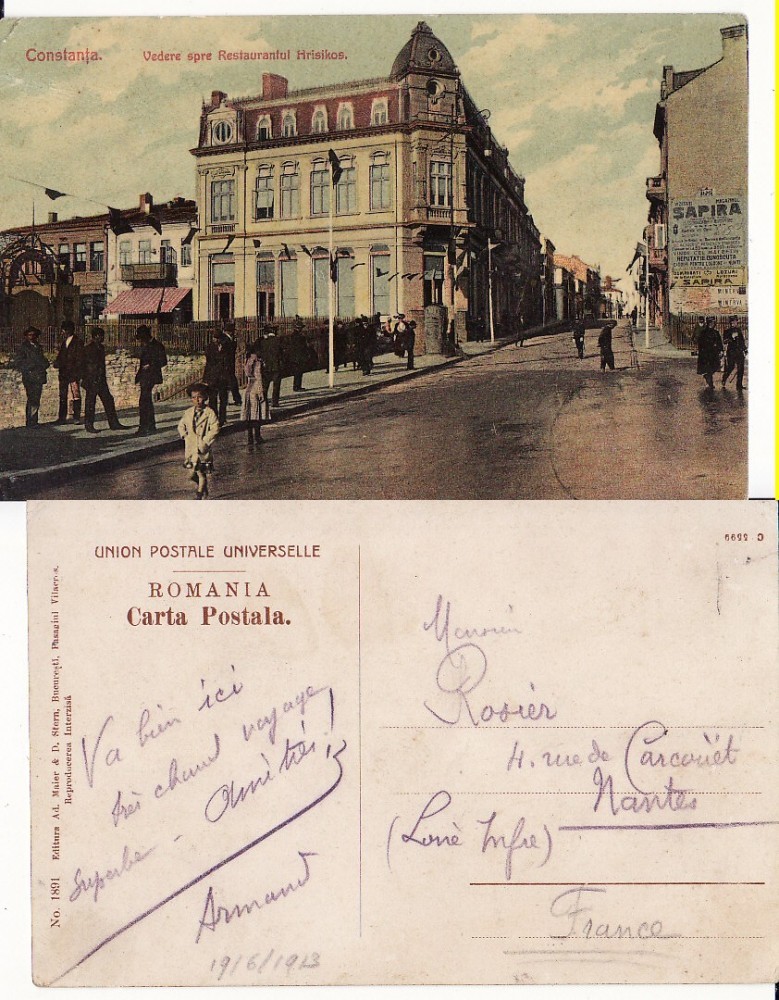 Constanța.
Vedere spre Restaurantul Hrisikos.
SAPIRA
SAPIRA
MINERVA
6622 C
UNION POSTALE UNIVERSELLE
ROMANIA
Carta Postala.
No. 1891 Editura Ad. Maier & D. Stern, Bucureṣti, Pasagiul Vilacros.
Reproducerea Interzisă
Va bien ici
très chaud voyage
superbe - Amitiés!
Armand
19/6/1913
Monsieur
Rosier
4. rue de Carcouët
Nantes
(Loire Infre)
France